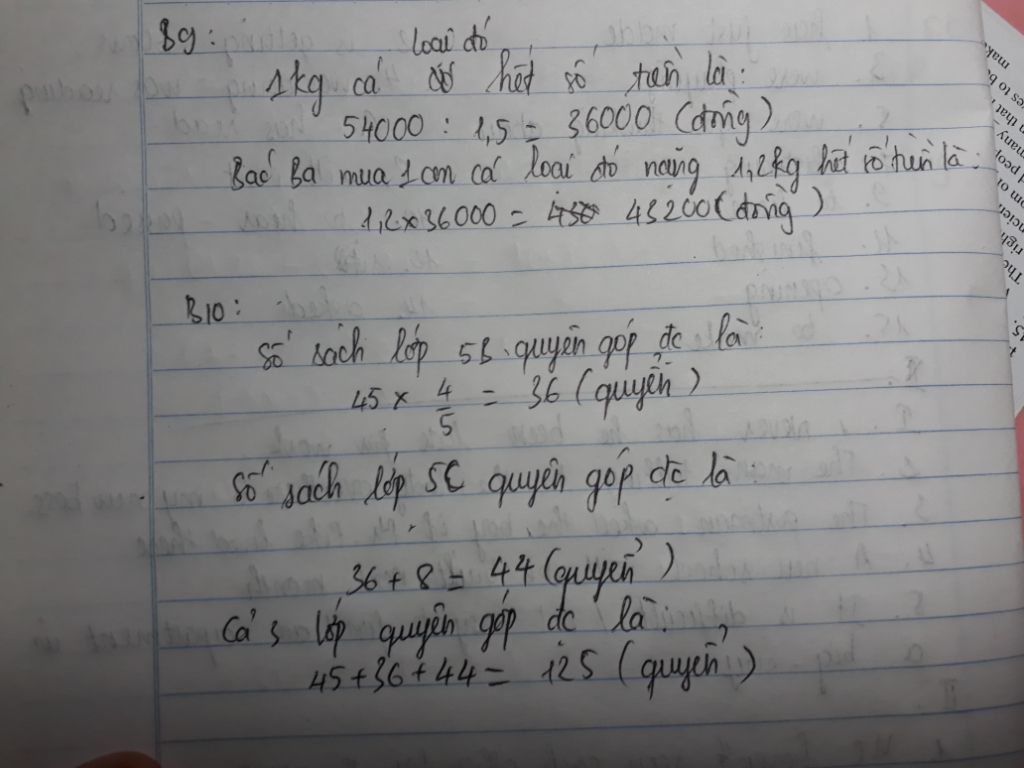 B9:
loại đó
1kg cá hết số tiền là:
54000 : 1,5 = 36000 (đồng)
Bác Ba mua 1 con cá loại đó nặng 1,2kg hết số tiền là:
1,2 x 36000 = 43200 (đồng)
B10:
Số sách lớp 5B quyên góp đc là:
45 x 4/5 = 36 (quyển)
Số sách lớp 5C quyên góp đc là
36 + 8 = 44 (quyển)
Cả 3 lớp quyên góp đc là:
45 + 36 + 44 = 125 (quyển)
make
es to b
that
many